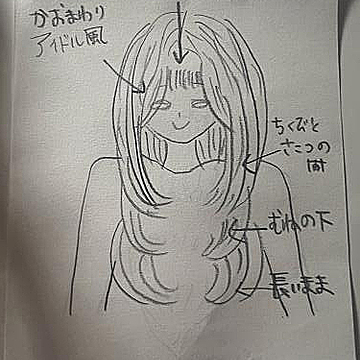 かおまわり
アイドル風
ちくびと
さこつの
間
むねの下
長いまま